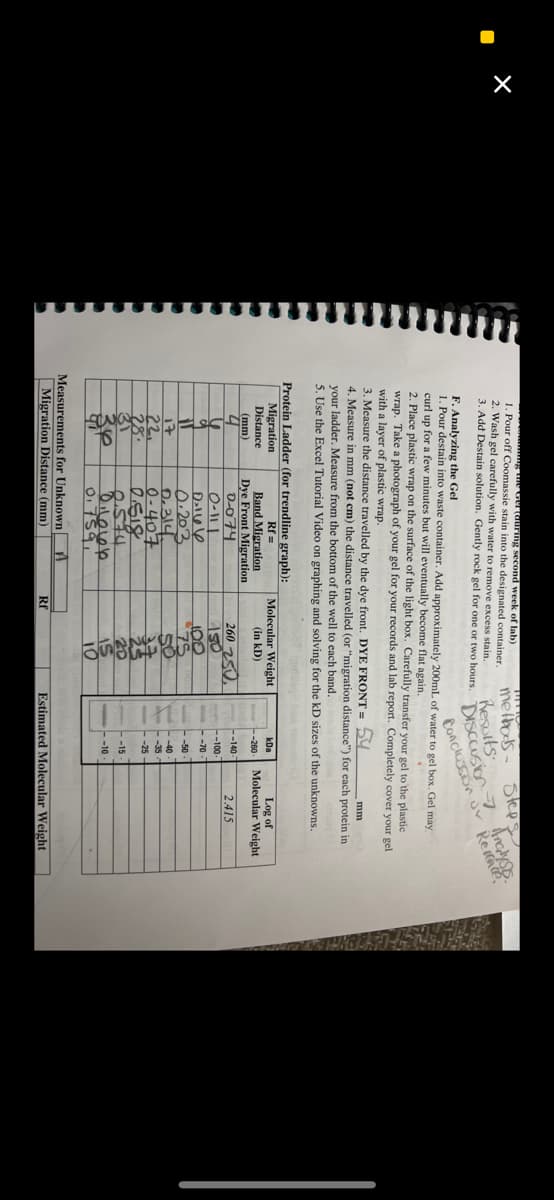 (during second week of lab)
1. Pour off Coomassie stain into the designated container.
2. Wash gel carefully with water to remove excess stain.
3. Add Destain solution. Gently rock gel for one or two hours.
methods - Steps
Results:
Discussion →
Conclusion
F. Analyzing the Gel
1. Pour destain into waste container. Add approximately 200mL of water to gel box. Gel may
curl up for a few minutes but will eventually become flat again.
2. Place plastic wrap on the surface of the light box. Carefully transfer your gel to the plastic
wrap. Take a photograph of your gel for your records and lab report. Completely cover your gel
with a layer of plastic wrap.
3. Measure the distance travelled by the dye front. DYE FRONT = 54 mm
4. Measure in mm (not cm) the distance travelled (or "migration distance") for each protein in
your ladder. Measure from the bottom of the well to each band.
5. Use the Excel Tutorial Video on graphing and solving for the kD sizes of the unknowns.
Protein Ladder (for trendline graph):
Migration Distance (mm) Rf = Band Migration Dye Front Migration Molecular Weight (in kD) kDa Log of Molecular Weight
4 0.074 260 250 -260- -140- 2.415
6 0.111 150 -100-
9 0.166 100 -70
11 0.203 75 -50
17 0.314 50 -40
22 0.407 37 -35
28 0.518 25 -25
31 0.574 20 -15
36 0.666 15 -10
41 0.759 10
Measurements for Unknown A
Migration Distance (mm) Rf Estimated Molecular Weight